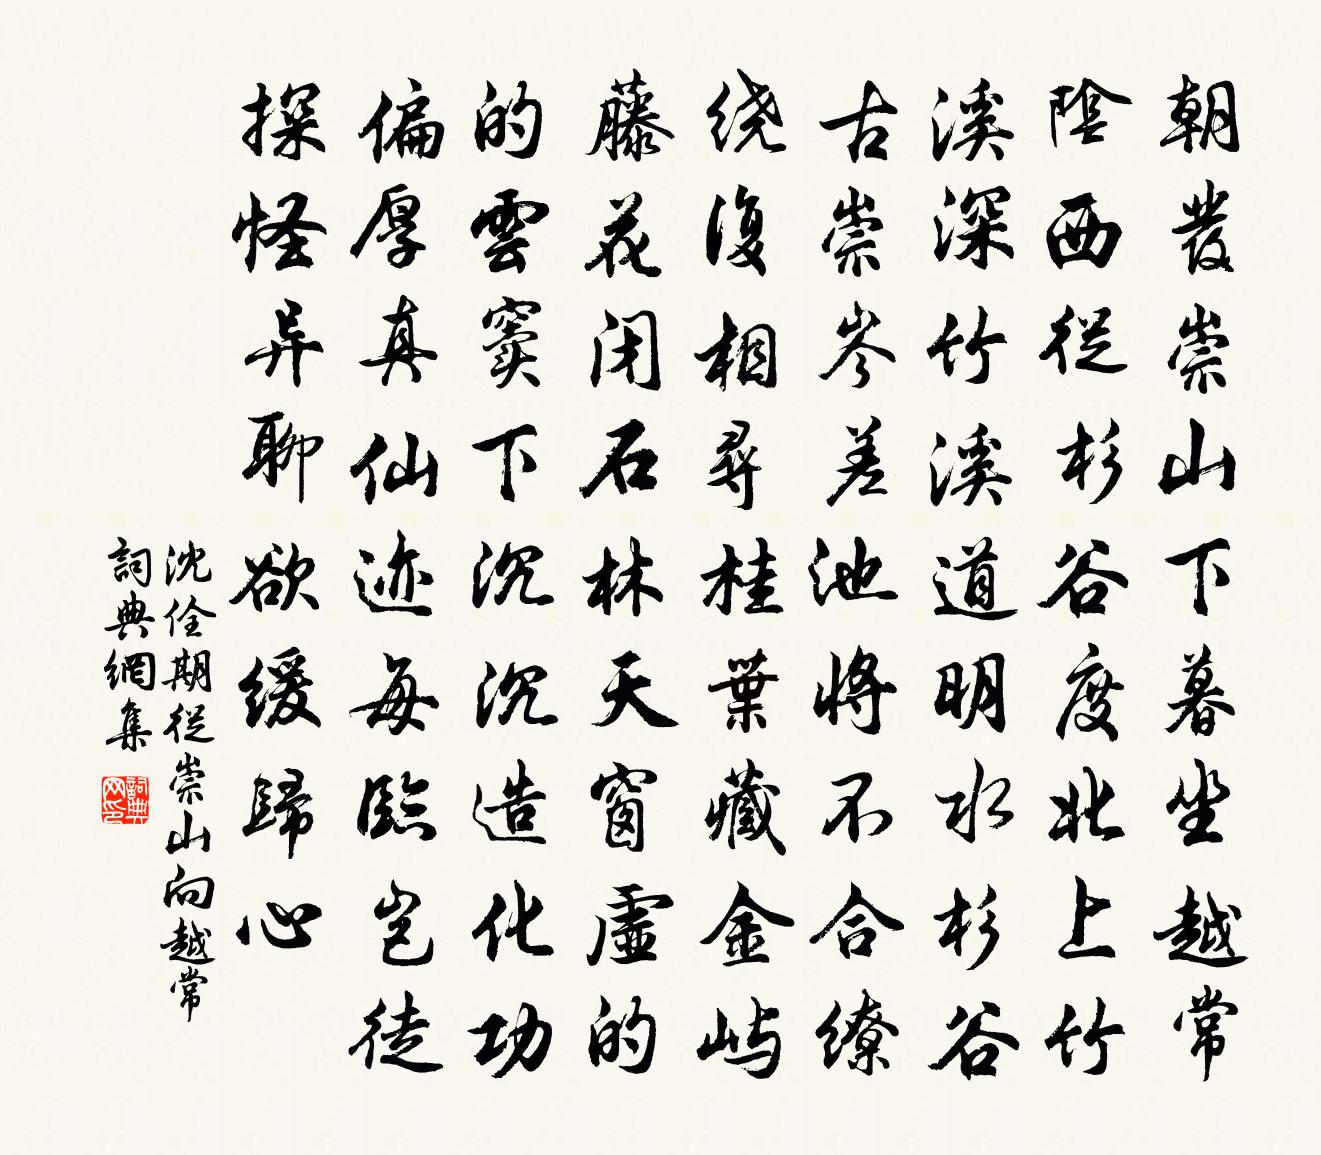 朝發崇山下暮坐越常
陰西從杉谷度北上竹
溪深竹溪道明水杉谷
古崇岑差池将不合缭
绕復相尋桂葉藏金屿
藤花闭石林天窗虚的
的雲窦下沉沉造化功
偏厚真仙迹每臨岂徒
探怪异聊欲缓歸心
沈佺期從崇山向越常
詞典網集
詞典网印